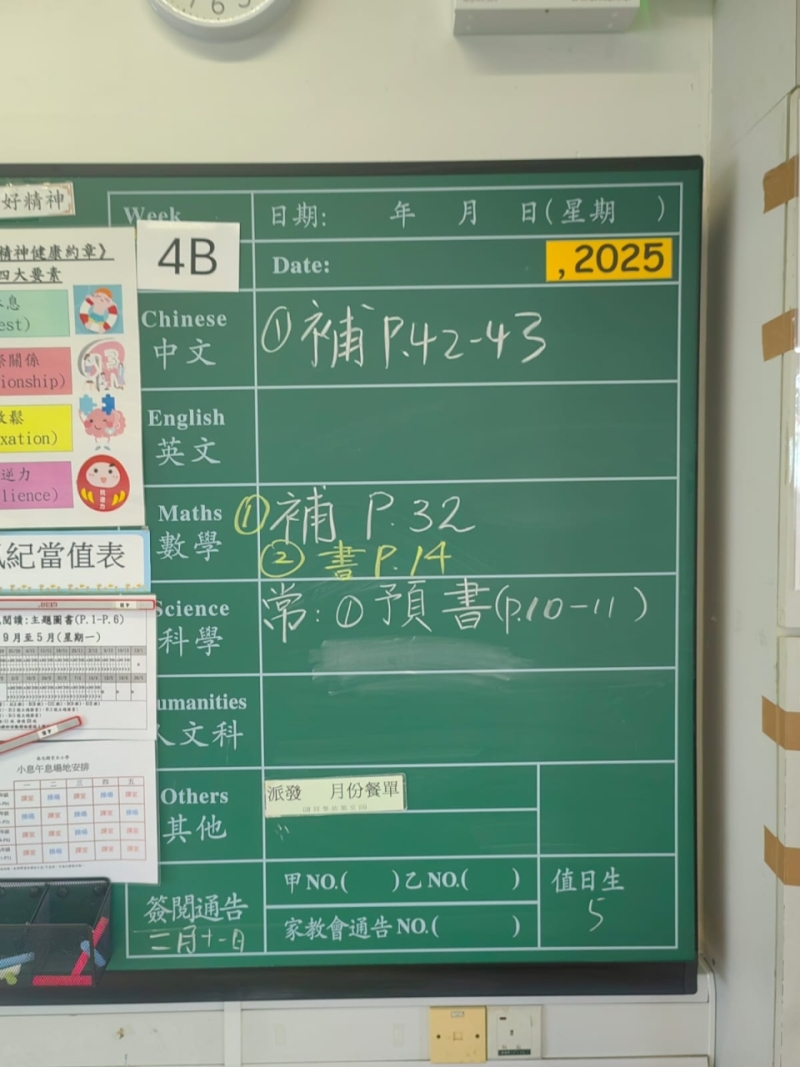 好精神
精神健康約章》
四大要素
息
est)
關係
ionship)
鬆
xation)
逆力
lience)
紀當值表
閱讀:主題圖書(P.1-P.6)
9月至5月(星期一)
小息午息場地安排
一 二 三 四 五
Week
4B
日期: 年 月 日(星期 )
Date: , 2025
Chinese
中文
①補 P.42-43
English
英文
Maths
數學
①補 P.32
② 書 P.14
Science
科學
常:①預書(p.10-11)
umanities
人文科
Others
其他
派發 月份餐單
簽閱通告
二月十一日
甲NO.( )乙NO.( )
家教會通告NO.( )
值日生
5